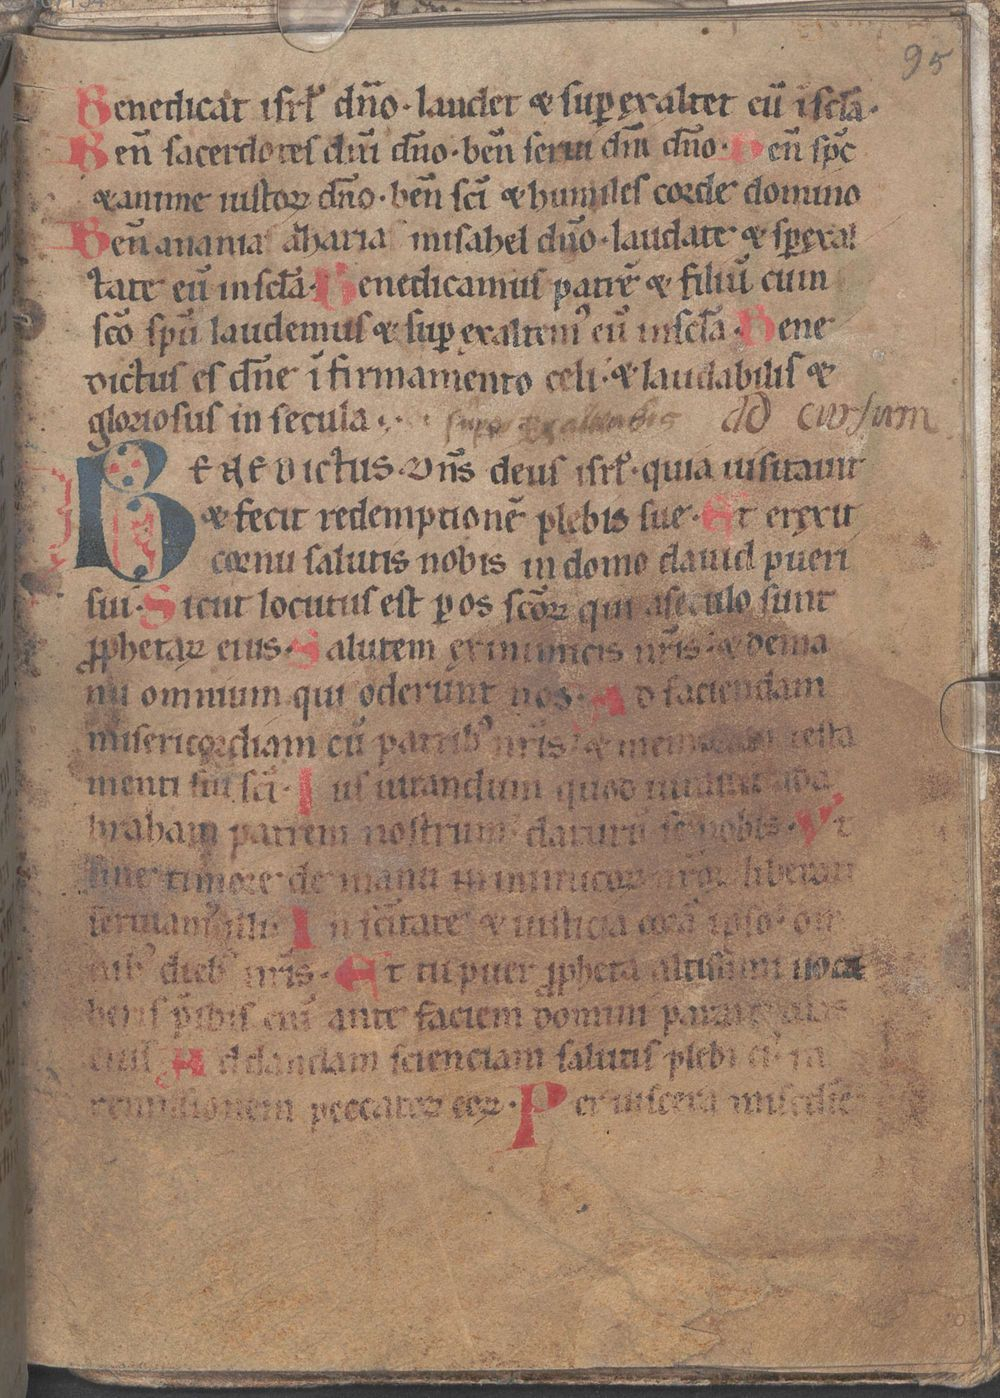 95
Benedicat isrl̄ dn̄o · laudet ⁊ suꝑexaltet eū ī scl̄a ·
Ben̄ sacerdotes dn̄i dn̄o · ben̄ serui dn̄i dn̄o · Ben̄ sp̄c
⁊ anime iustoꝝ dn̄o · ben̄ sc̄i ⁊ humiles corde domino
Ben̄ anania aharia misahel dn̄o · laudate ⁊ sꝑexal
tate eū in scl̄a · Benedicamus patrē ⁊ filiū cum
sc̄o sp̄u laudemus ⁊ suꝑexaltemꝰ eū in scl̄a · Bene
dictus es dn̄e ī firmamento celi · ⁊ laudabilis ⁊
gloriosus in secula · super exaltabis ad cursum
BENEDictus · Dn̄s deus isrl̄ · quia uisitauit
⁊ fecit redemptionē plebis sue · Et erexit
cornu salutis nobis in domo dauid pueri
sui · Sicut locutus est ꝑ os sc̄oꝝ qui a seculo sunt
ꝓphetaꝝ eius · Salutem ex inimicis nr̄is · ⁊ de ma
nu omnium qui oderunt nos · Ad faciendam
misericordiam cū patribꝰ nr̄is · ⁊ testa
menti sui sc̄i · Ius iurandum quod iurauit ada
braham patrem nostrum · daturū se nobis · Vt
sine timore de manu inimicoꝝ liberati
seruiamꝰ illi · In sc̄itate ⁊ iusticia corā ipso · om
nibꝰ diebꝰ nr̄is · Et tu puer ꝓpheta altissimi uoca
beris ante faciem domini parare uias
eius Ad dandam scienciam salutis plebi eiꝰ · in
remissionem peccatoꝝ eoꝝ · Per uiscera